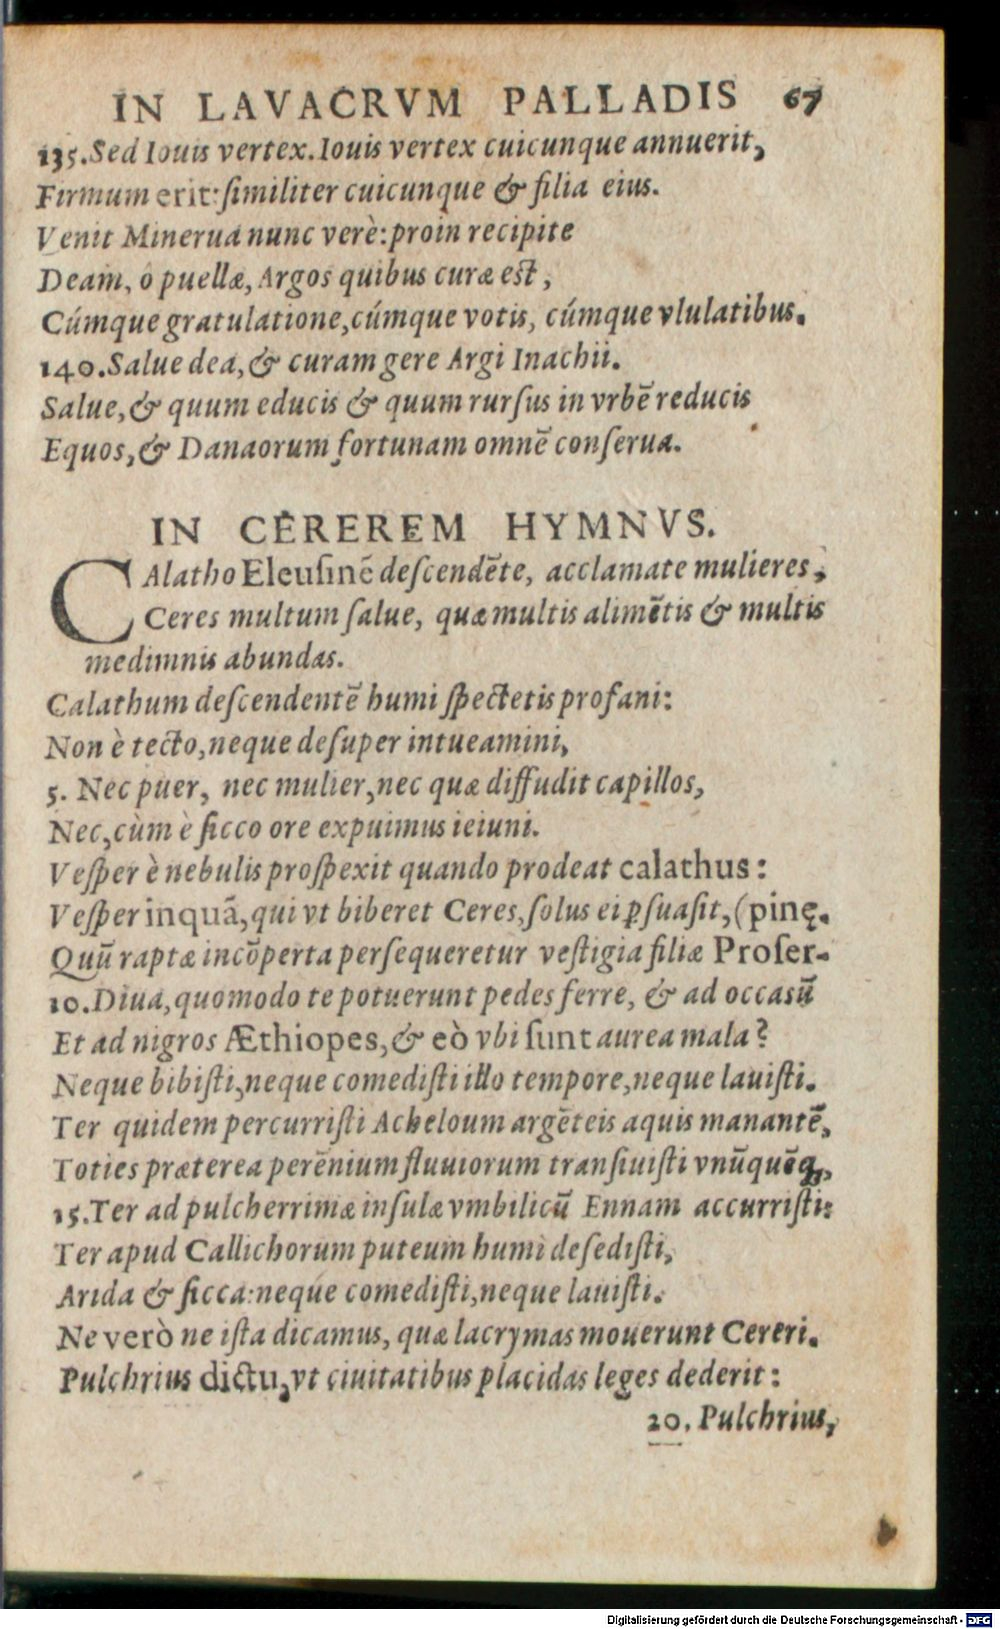 IN LAVACRVM PALLADIS 67
135. Sed Iouis vertex. Iouis vertex cuicunque annuerit,
Firmum erit: ſimiliter cuicunque & filia eius.
Venit Minerua nunc verè: proin recipite
Deam, o puellæ, Argos quibus curæ est,
Cúmque gratulatione, cúmque votis, cúmque vlulatibus.
140. Salue dea, & curam gere Argi Inachii.
Salue, & quum educis & quum rurſus in vrbē reducis
Equos, & Danaorum fortunam omnē conſerua.
IN CEREREM HYMNVS.
CAlatho Eleuſinē deſcendēte, acclamate mulieres,
Ceres multum ſalue, quæ multis alimētis & multis
medimnis abundas.
Calathum deſcendentē humi ſpectetis profani:
Non è tecto, neque deſuper intueamini,
5. Nec puer, nec mulier, nec quæ diffudit capillos,
Nec, cùm è ſicco ore expuimus ieiuni.
Veſper è nebulis proſpexit quando prodeat calathus:
Veſper inquā, qui vt biberet Ceres, ſolus ei ꝑſuaſit, (pinę.
Quū raptæ incōperta perſequeretur veſtigia filiæ Proſer-
10. Diua, quomodo te potuerunt pedes ferre, & ad occasū
Et ad nigros Æthiopes, & eò vbi ſunt aurea mala?
Neque bibiſti, neque comediſti illo tempore, neque lauiſti.
Ter quidem percurriſti Acheloum argēteis aquis manantē,
Toties præterea perēnium fluuiorum tranſiuiſti vnūquēq;,
15. Ter ad pulcherrimæ inſulæ vmbilicū Ennam accurriſti:
Ter apud Callichorum puteum humi deſediſti,
Arida & ſicca: neque comediſti, neque lauiſti.
Ne verò ne iſta dicamus, quæ lacrymas mouerunt Cereri.
Pulchrius dictu, vt ciuitatibus placidas leges dederit:
20. Pulchrius,
Digitalisierung gefördert durch die Deutsche Forschungsgemeinschaft - DFG